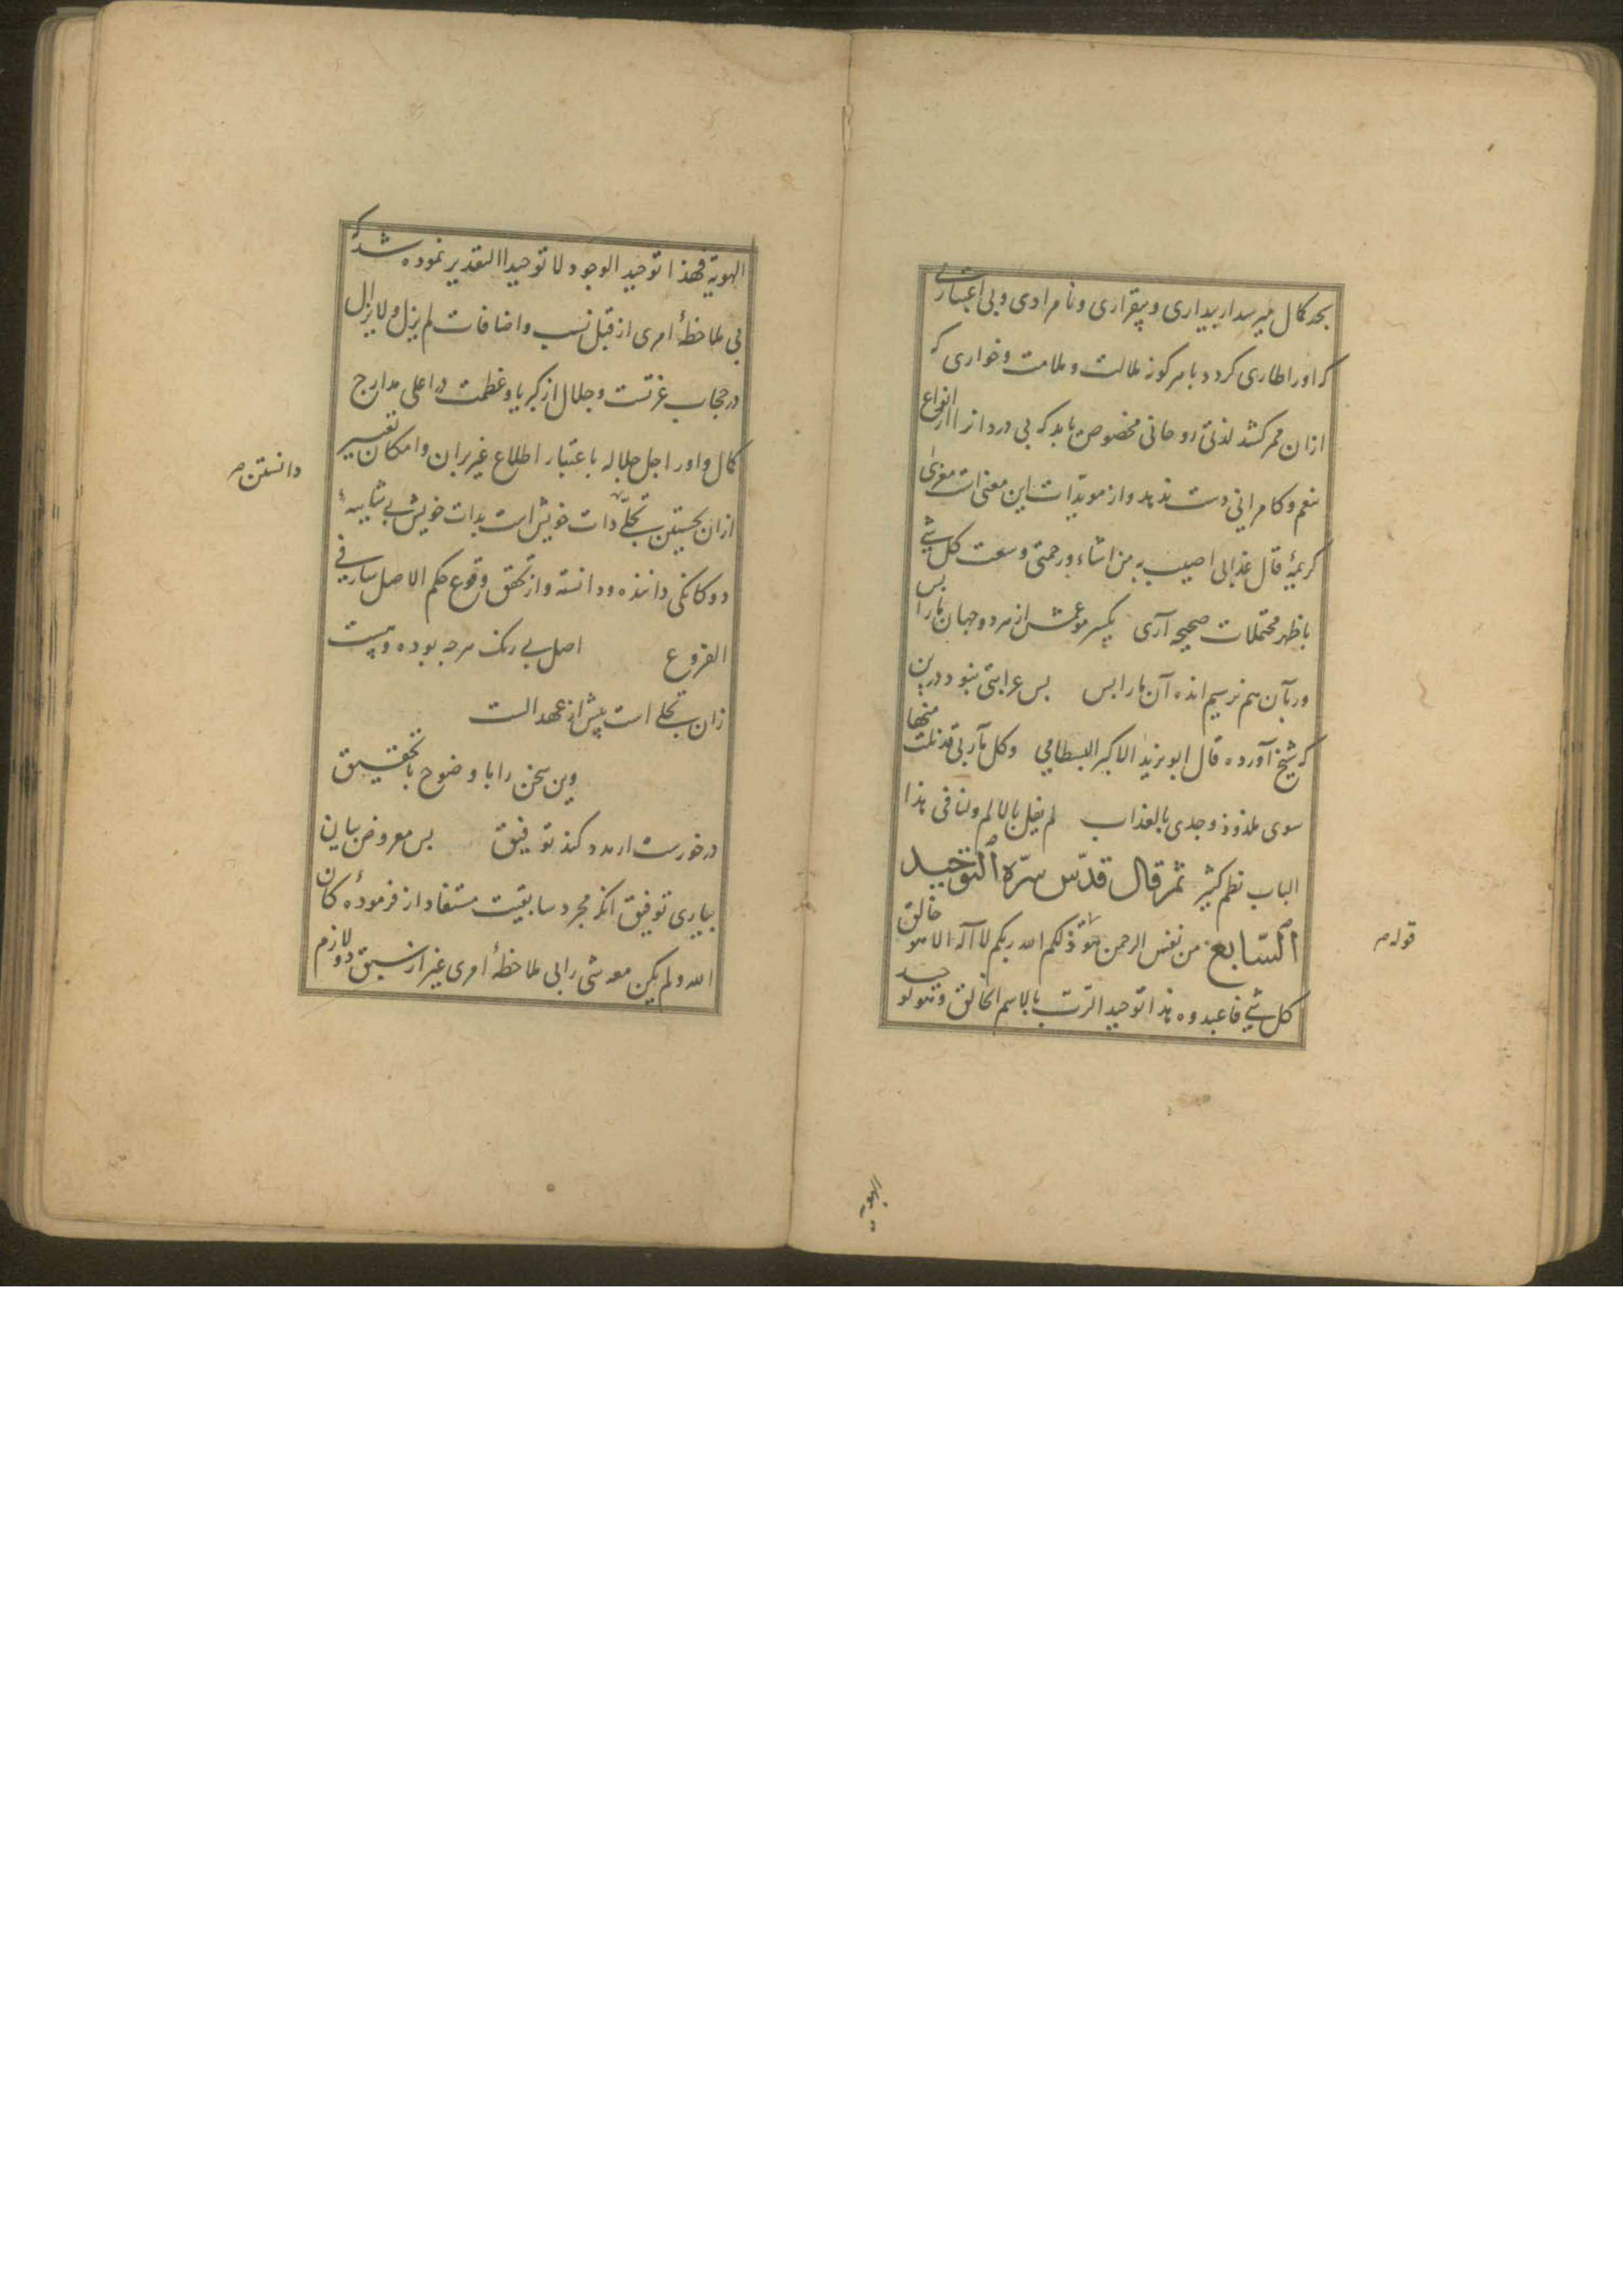 بحد کمال میرسد از بیداری و بیقراری و نامرادی و بی اعتباری
که او را طاری کردد با هر کونه ملالت و ملامت و خواری که
ازان ممر کشد لذتی روحانی مخصوص یابد که بی دردانرا از انواع
تنعم و کامرانی دست ندهد و از مویدات این معنی است مغزی
کریمهٔ قال عذابی اصیب به من اشاء و رحمتی وسعت کل شیٔ
باظهر محتملات صحیحه آری یکسر مو عشق از هر دو جهان ما را بس
ور بآن هم نرسیم انده آن ما را بس بس غرابتی نبود درین
که شیخ آورده قال ابو یزید الاکبر البسطامی وکل مآربی قد نلت منها
سوی ملذوذ وجدی بالعذاب لم یقل بالالم ولنا فی هذا
الباب نظم کثیر ثم قال قدس سره التوحید
السابع من نفس الرحمن هو قوله ذلکم الله ربکم لا اله الا هو خالق
کل شیٔ فاعبدوه هذا توحید الرب بالاسم الخالق وهو توحید
قوله
الهویة
الهویة فهذا توحید الوجود لا توحید التقدیر نموده شد که
بی ملاحظهٔ امری از قبل نسب و اضافات لم یزل ولا یزال
در حجاب عزتست و جلال از کبریا و عظمت در اعلی مدارج
کمال و او را جل جلاله باعتبار اطلاع غیر بران و امکان تعبیر
ازان نخستین تجلی ذات خویش است بذات خویش بی شایبهٔ
دوکانکی داننده و دانسته و از تحقق وقوع حکم الاصل سار فی
الفروع اصل بی رنک هرچه بوده و هست
زان تجلی است پیش از عهد الست
وین سخن را با وضوح با تحقیق
در خورست ار مدد کند توفیق بس معروض بیان
بیاری توفیق آنکه مجرد سابقیت مستفاد از فرمودهٔ کان
الله ولم یکن معه شی را بی ملاحظهٔ امری غیر از سبق و لازم
دانستن